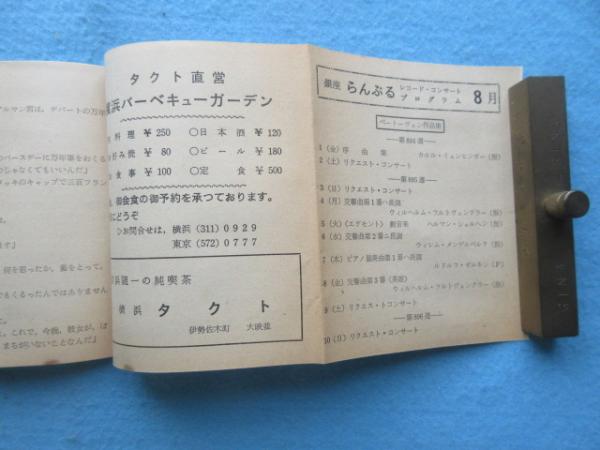 アルマン君は、デパートの万年
のバースデーに万年筆をおくる
のじゃなくてもいいんだ』
メッキのキャップで三百フラン
ます』
何を思つたか、籠をとつて、
でもくるつたんではありません
れ。これで、今晩、彼女が、は
まちがいないことなんだ』
タクト直営
横浜バーベキューガーデン
料理 ¥250 〇日本酒 ¥120
好み焼 ¥80 〇ビール ¥180
食事 ¥100 〇定食 ¥500
御会食の御予約を承つております。
にどうぞ
〇お問合せは、横浜(311)0929
東京(572)0777
一の純喫茶
横浜 タクト
伊勢佐木町 大映並
銀座 らんぶる レコード・コンサート プログラム 8月
ベートーヴェン作品集
―第894週―
1 (金) 序曲集 カルル・ミュンヒンガー(指)
2 (土) リクエスト・コンサート
―第895週―
3 (日) リクエスト・コンサート
4 (月) 交響曲第1番ハ長調
ウィルヘルム・フルトヴェングラー(指)
5 (火) 《エグモント》劇音楽 ヘルマン・シェルヘン(指)
6 (水) 交響曲第2番ニ長調
ウィレム・メンゲルベルク(指)
7 (木) ピアノ協奏曲第1番ハ長調
ルドルフ・ゼルキン(P)
8 (金) 交響曲第3番(英雄)
ウィルヘルム・フルトヴェングラー(指)
9 (土) リクエスト・コンサート
―第896週―
10 (日) リクエスト・コンサート